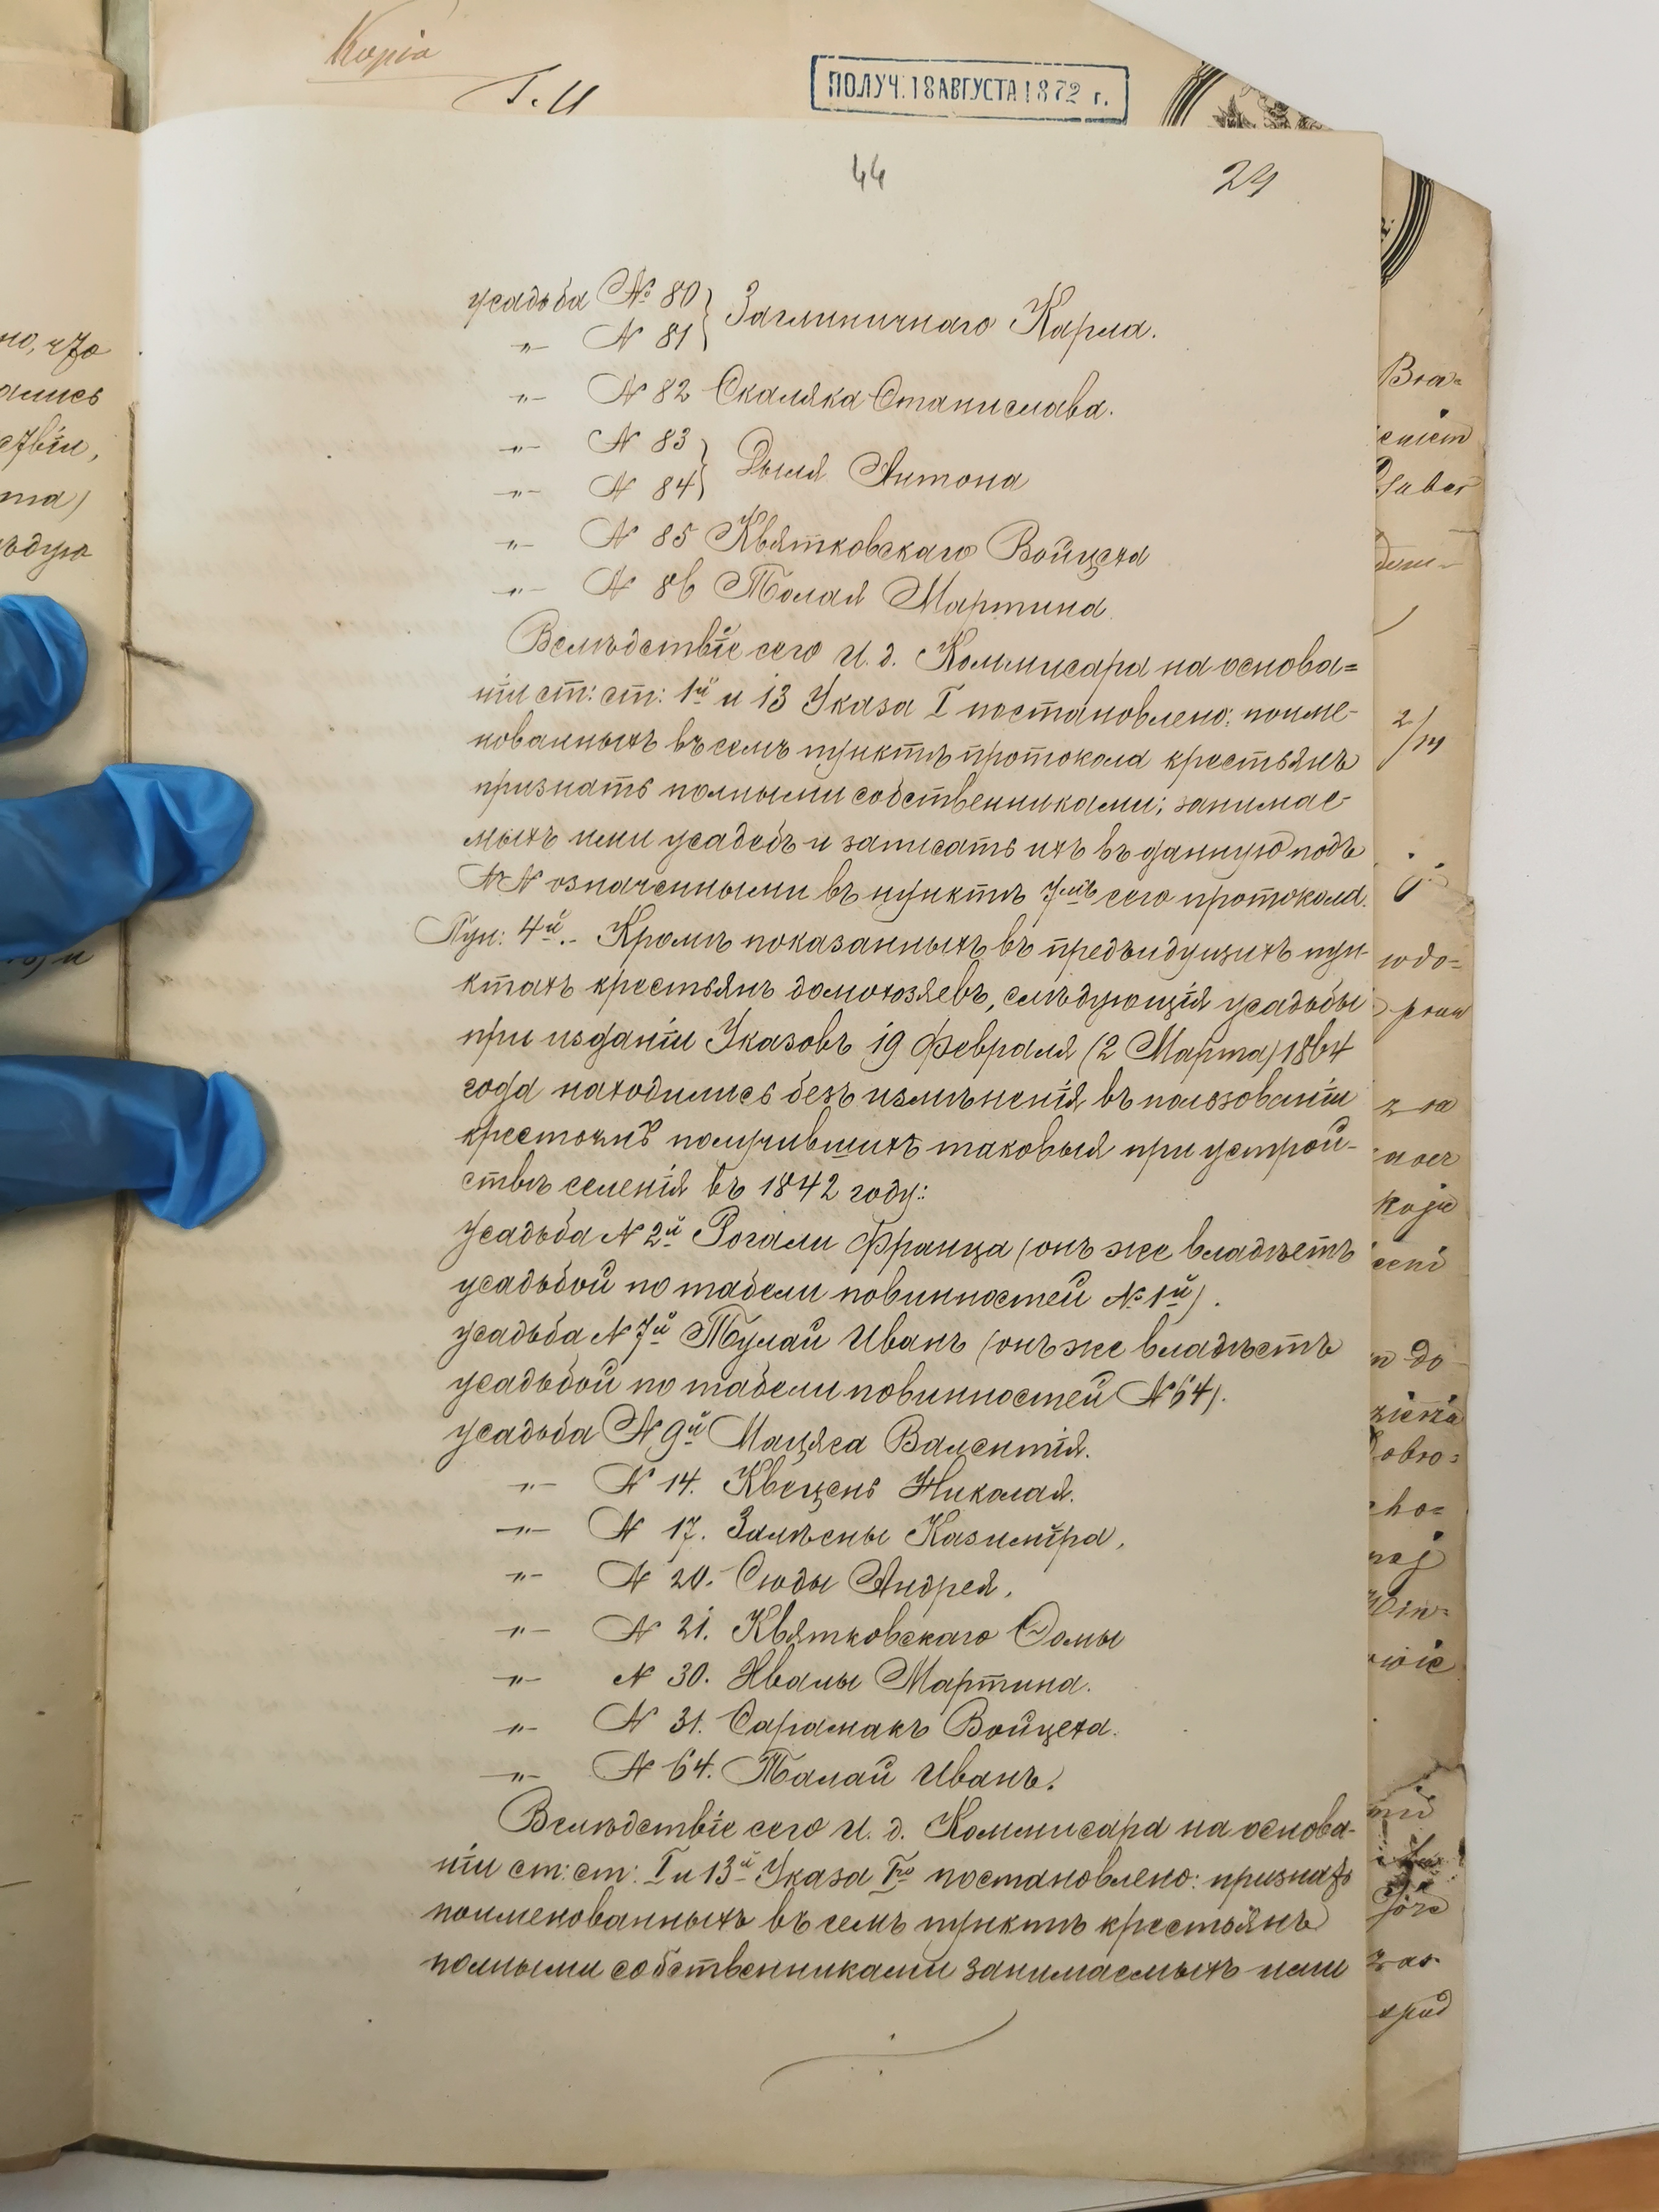 Копія
ПОЛУЧ. 18 АВГУСТА 1872 г.
44
29
усадьба № 80
-"- № 81
Заглиничнаго Карла.
-"- № 82 Скаляка Станислава.
-"- № 83
-"- № 84
Дыля Антона
-"- № 85 Квятковскаго Войцеха
-"- № 86 Талая Мартина.
Вслѣдствіе сего И. д. Коммисара на основа=
ніи ст: ст: 1й и 13 Указа I постановлено: поиме-
нованныхъ въ семъ пунктѣ протокола крестьянъ
признать полными собственниками; занимае-
мыхъ ими усадебъ и записать ихъ въ данную подъ
№№ означенными въ пунктѣ 7мъ сего протокола.
Пун: 4й.- Кромѣ показанныхъ въ предъидущихъ пун-
ктахъ крестьянъ домохозяевъ, слѣдующія усадьбы
при изданіи Указовъ 19 Февраля (2 Марта) 1864
года находились безъ измѣненія въ пользованіи
крестьянъ получившихъ таковыя при устрой-
ствѣ селенія въ 1842 году:
Усадьба № 2й Рогали Франца (онъ же владѣетъ
усадьбой по табели повинностей № 1й).
усадьба № 7й Тулай Иванъ (онъ же владѣетъ
усадьбой по табели повинностей № 64).
усадьба № 9й Мацяса Валентія.
-"- № 14. Квецень Николая.
-"- № 17. Залѣсны Казиміра,
-"- № 20. Сюды Андрея.
-"- № 21. Квятковскаго Ѳомы
-"- № 30. Хвалы Мартина.
-"- № 31. Сарамакъ Войцеха.
-"- № 64. Талай Иванъ.
Вслѣдствіе сего И. д. Коммисара на основа-
ніи ст: ст: I и 13й Указа Iго постановлено: признать
поименованныхъ въ семъ пунктѣ крестьянъ
полными собственниками занимаемыхъ ими